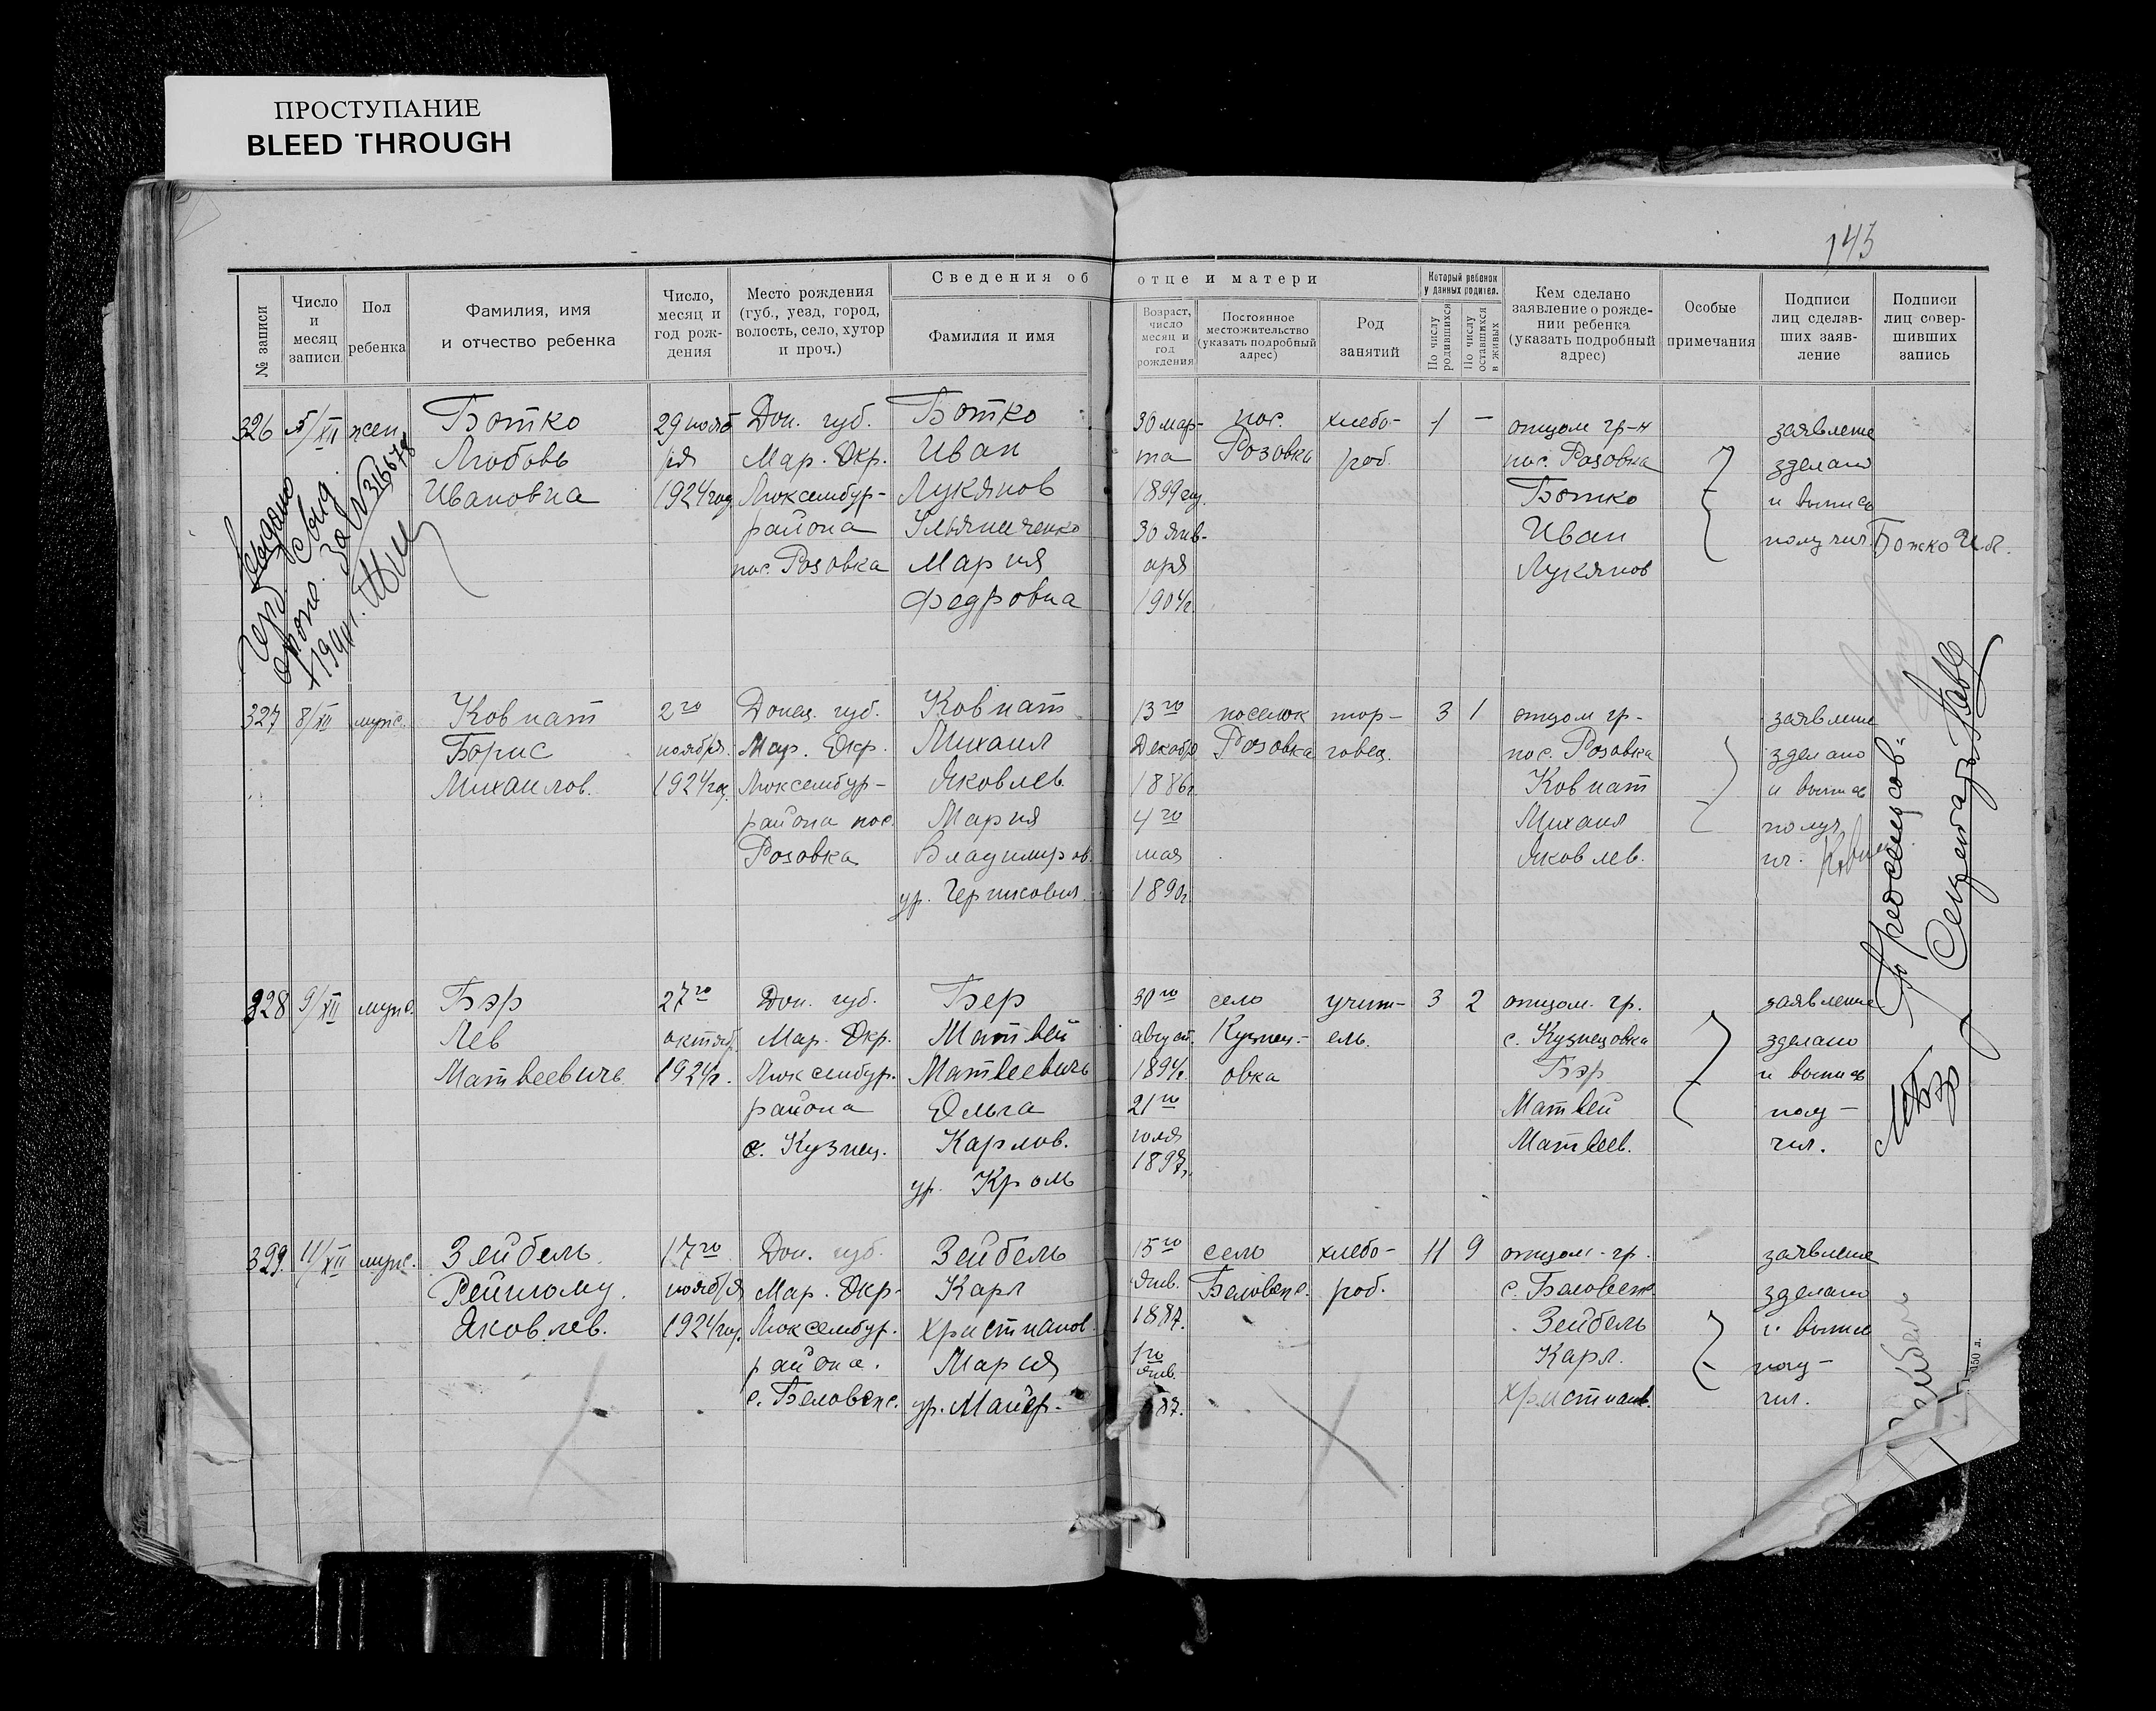 ПРОСТУПАНИЕ
BLEED THROUGH
143
№ записи
Число и месяц записи
Пол ребенка
Фамилия, имя и отчество ребенка
Число, месяц и год рождения
Место рождения (губ., уезд, город, волость, село, хутор и проч.)
Сведения об отце и матери
Фамилия и имя
Возраст, число месяц и год рождения
Постоянное местожительство (указать подробный адрес)
Род занятий
Который ребенок у данных родител.
По числу родившихся
По числу оставшихся в живых
Кем сделано заявление о рождении ребенка (указать подробный адрес)
Особые примечания
Подписи лиц сделавших заявление
Подписи лиц совершивших запись
326 5/XII жен. Ботко 29 нояб Дон. губ. Ботко 30 мар- пос. хлебо- 1 — отцом гр-н заявление
Любовь ря Мар. Окр. Иван та Розовка роб. пос. Розовка зделано
Ивановна 1924 год. Люксембур- Лукянов 1899 год. Ботко и выпись
района Ульяниченко 30 янв- Иван получил Божко И.Л.
пос. Розовка Мария аря Лукянов
Федровна 1904 г.
327 8/XII мужс. Ковнат 2го Донец. губ. Ковнат 13го поселок тор- 3 1 отцом гр- заявление
Борис ноября. Мар. Окр. Михаил Декабр Розовка говец. пос. Розовка зделано
Михаилов. 1924 год. Люксембур- Яковлев 1886 г. Ковнат и выпись
района пос. Мария 4го Михаил получ
Розовка Владимиров. мая Яковлев. ил.
ур. 1890 г.
328 9/XII мужс. Бэр 27го Дон. губ. Бер 30го село учит- 3 2 отцом. гр. заявление
Лев октяб. Мар. Окр. Матвей август. Кузнец- ель. с. Кузнецовка зделано
Матвеевичь 1924 г. Люксембур. Матвеевичь 1894 г. овка Бэр и выпись
района Ольга 21го Матвей полу-
с. Кузнец. Карлов. юля Матвеев. чил.
ур. Кроль 1897 г.
МБэр
Секретарь
329. 11/XII мужс. Зейбель 17го Дон. губ. Зейбель 15го село хлебо- 11 9 отцом гр. заявление
Рейнголу. ноября Мар. Окр- Карл Янв. Беловеж. роб. с. Беловеж зделано
Яковлев. 1924 год. Люксембур. Христианов. 1887. Зейбель и выпис
района. Мария 1го Янв. Карл. полу-
с. Беловеж. ур. Майер. 87. Христианов. чил.
Зейбель
150 л.